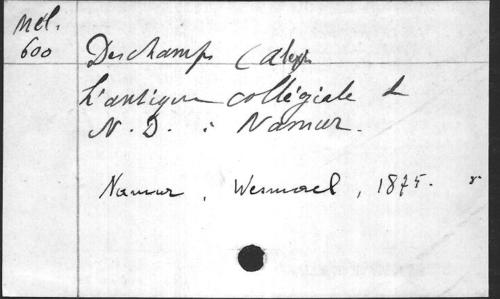 Mél.
600
Deschamps (Alexis
L'antique collégiale de
N. D. à Namur.
Namur, Wesmael, 1875. 8